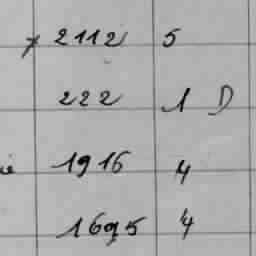 2112 5
222 1 D
1916 4
1695 4